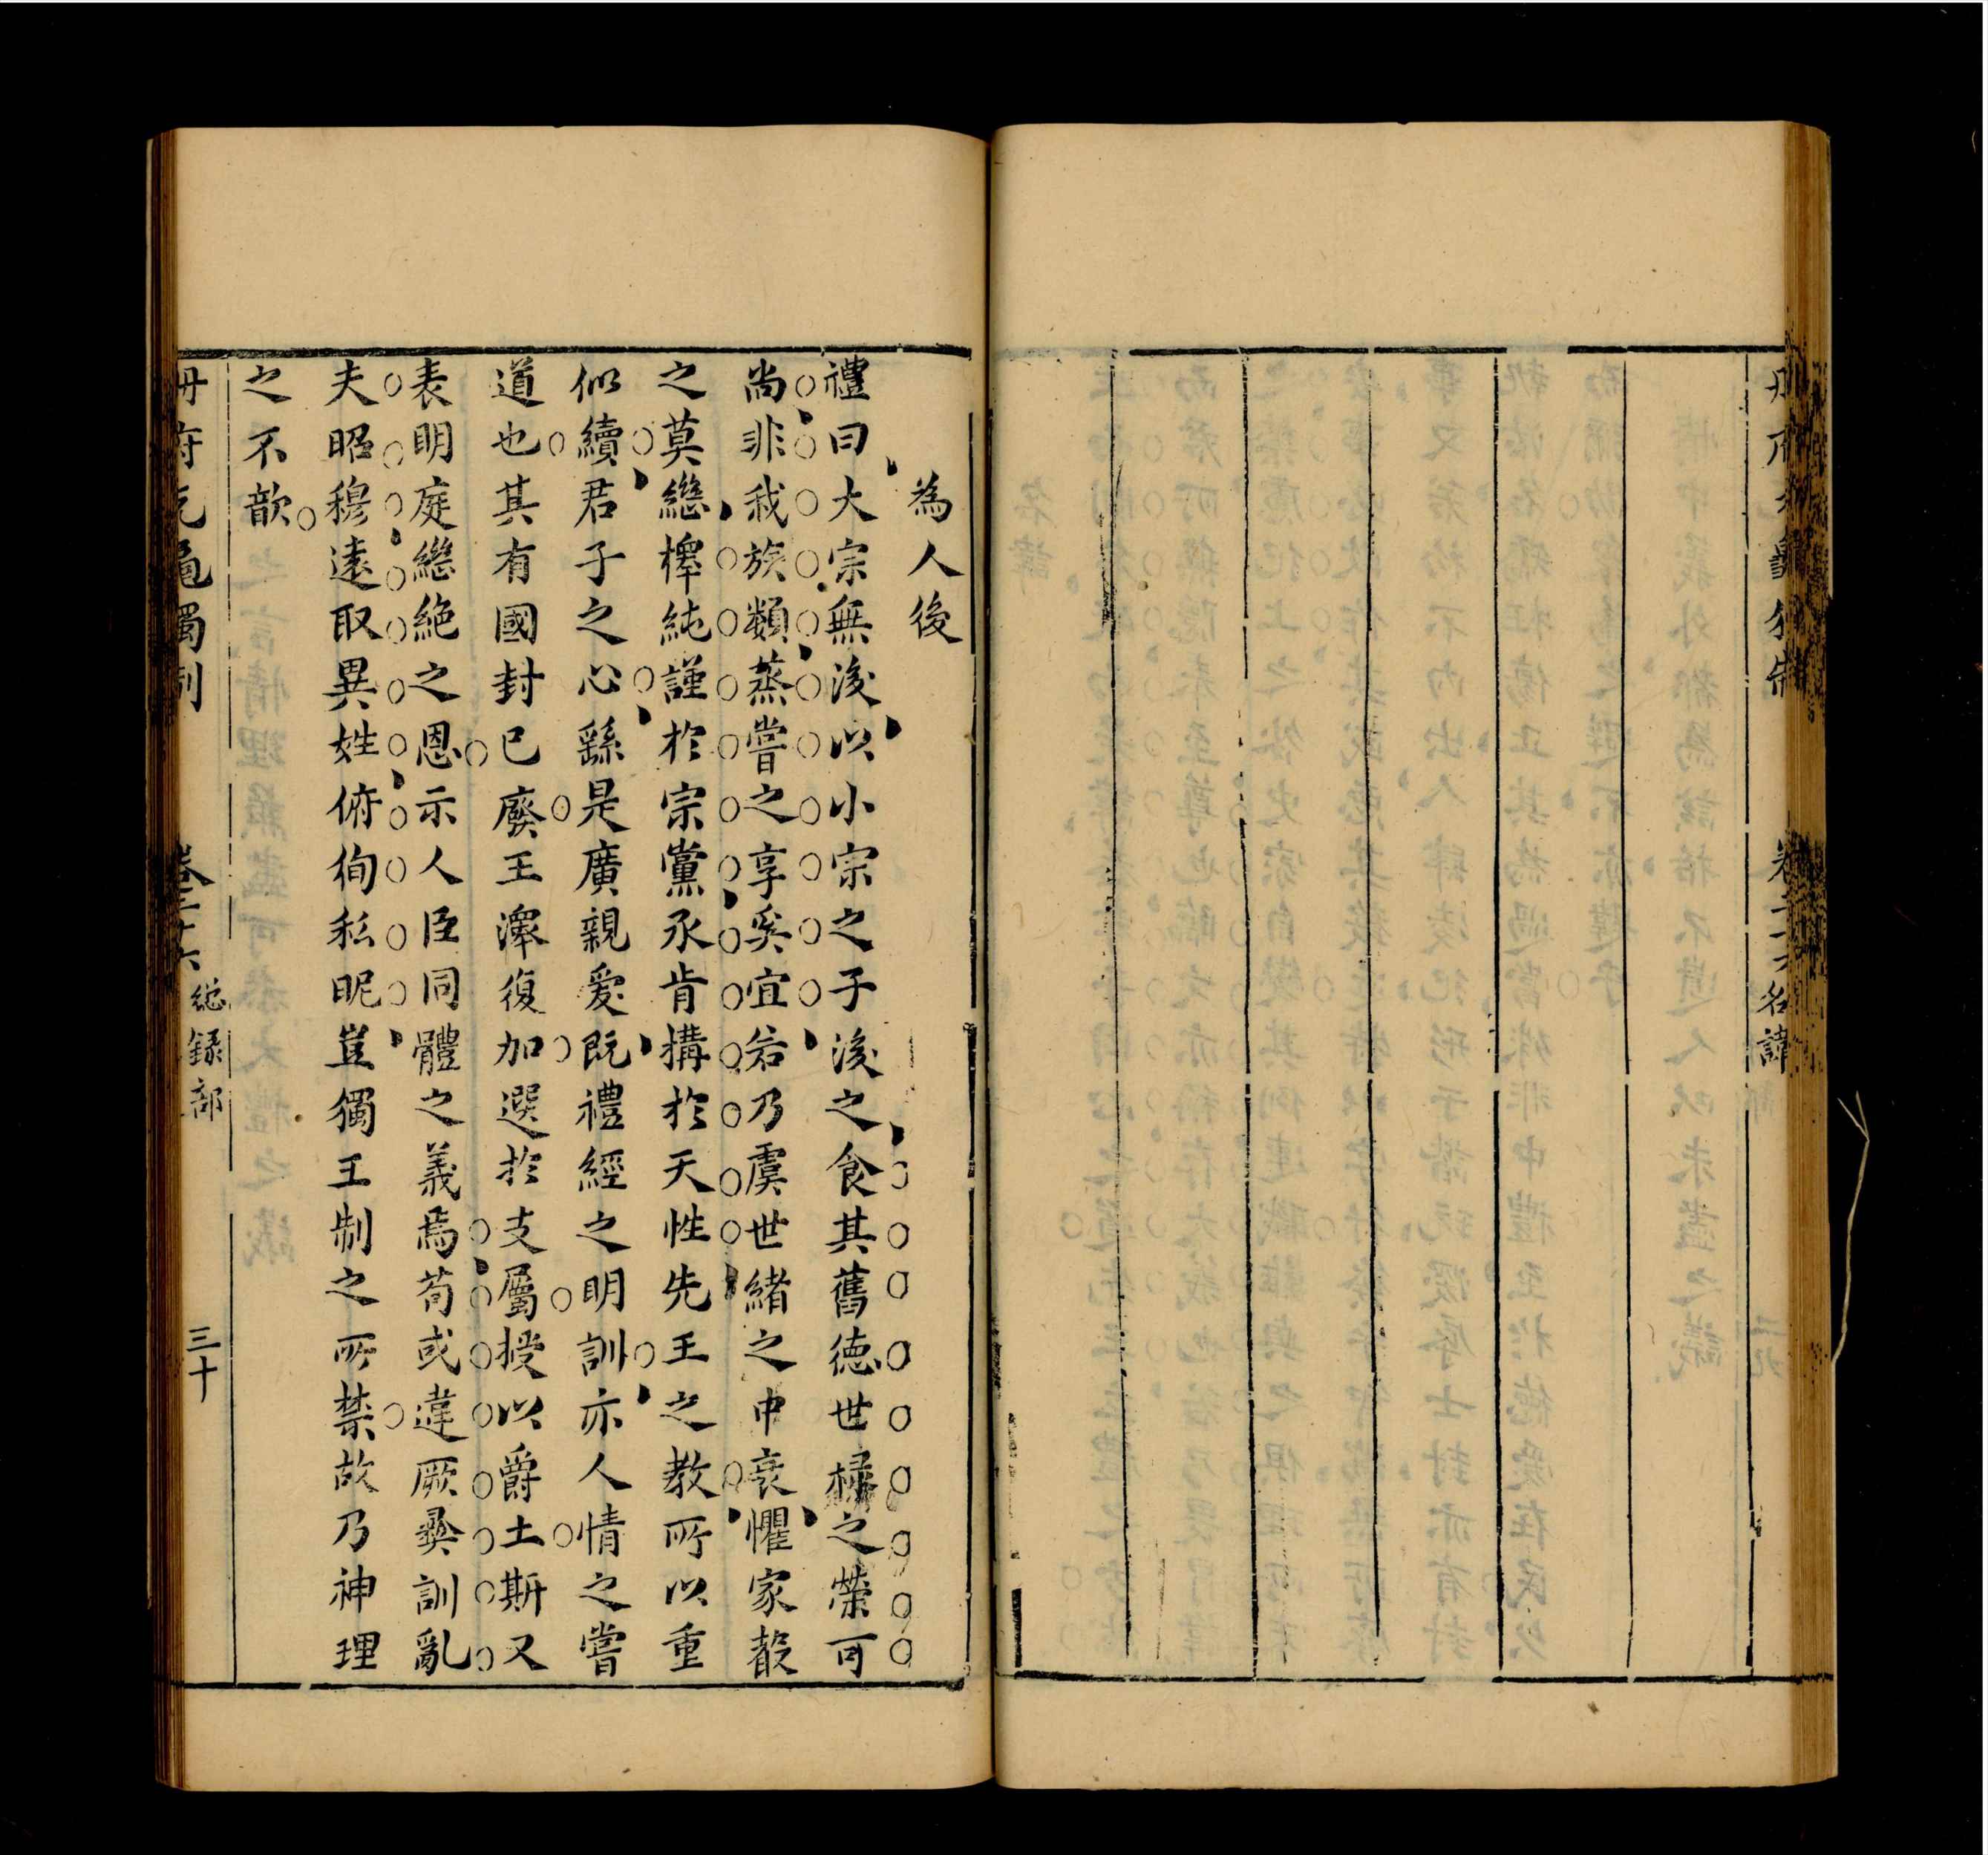 卷二十六 名諱
為人後
禮曰大宗無後以小宗之子後之食其舊德世祿之榮可
尚非我族類蒸嘗之享奚宜若乃虞世緒之中衰懼家嗀
之莫繼樿純謹於宗黨永肯搆於天性先王之教所以重
似續君子之心繇是廣親爱既禮經之明訓亦人情之嘗
道也其有國封已廢王澤復加選於支屬授以爵土斯又
表明庭繼絕之恩示人臣同體之義焉苟或違厥彝訓亂
夫昭穆遠取異姓俯徇私昵豈獨王制之所禁故乃神理
之不歆
冊府元龜獨制 卷二十六 總録部 三十